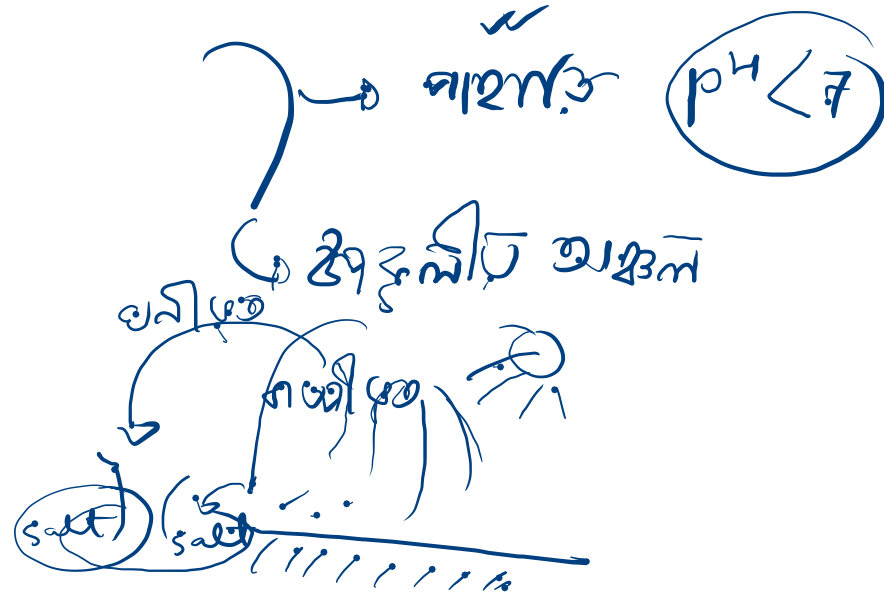 পাহাড় pH < 7
উপকূলীয় অঞ্চল
ঘনীভূত
বাষ্পীভূত
salt salt